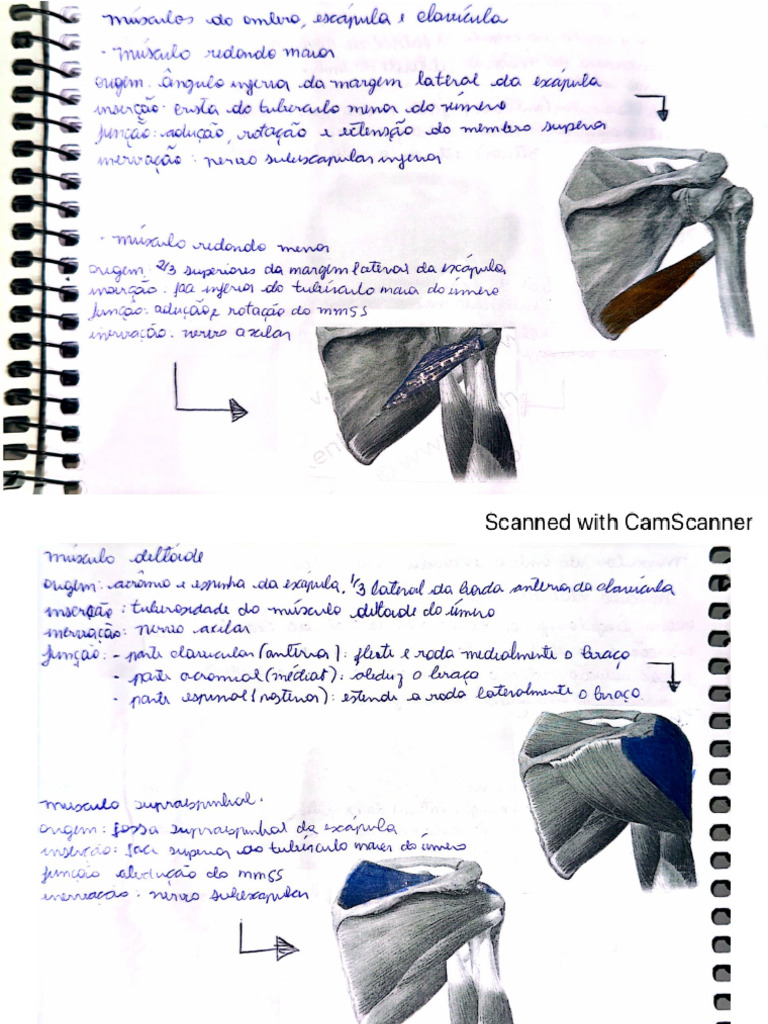 músculos do ombro, escápula e clavícula
· músculo redondo maior
origem: ângulo inferior da margem lateral da escápula
inserção: crista do tubérculo menor do úmero
função: adução, rotação e extensão do membro superior
inervação: nervo subescapular inferior
· músculo redondo menor
origem: 2/3 superiores da margem lateral da escápula
inserção: face inferior do tubérculo maior do úmero
função: adução e rotação do mmss
inervação: nervo axilar
Scanned with CamScanner
músculo deltoide
origem: acrômio e espinha da escápula, 1/3 lateral da borda anterior da clavícula
inserção: tuberosidade do músculo deltoide do úmero
inervação: nervo axilar
função: - parte clavicular (anterior): flete e roda medialmente o braço
- parte acromial (média): abduz o braço
- parte espinal (posterior): estende e roda lateralmente o braço
músculo supraespinhal.
origem: fossa supraespinhal da escápula
inserção: face superior do tubérculo maior do úmero
função abdução do mmss
inervação: nervo subescapular